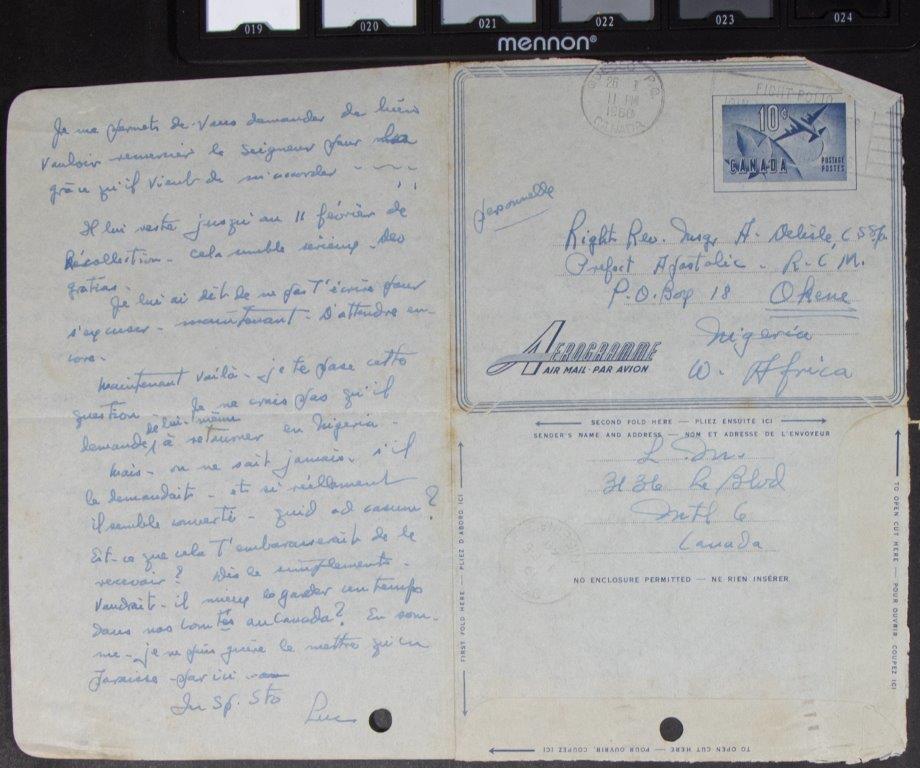 019 020 021 022 023 024
mennon®
Je me permets de vous demander de bien
vouloir remercier le Seigneur pour
grâce qu'il vient de m'accorder
Il lui reste jusqu'au 11 février de
Récollection. cela semble sérieux. Deo
gratias.
Je lui ai dit de ne pas t'écrire pour
s'excuser - maintenant. D'attendre en-
core.
Maintenant voilà - je te pose cette
question Je ne crois pas qu'il
demande, de lui-même à retourner en Nigeria.
Mais - on ne sait jamais. s'il
le demandait - et si réellement
il semble converti - quid ad casum?
Est-ce que cela t'embarasserait de le
recevoir? Dis le simplement.
Vaudrait-il mieux le garder un temps
dans nos au Canada? En som-
me - je ne puis guère le mettre qu'en
par ici
In Sp. Sto
Luc
26 I
11 PM
1960
CANADA
10¢
CANADA
POSTAGE
POSTES
personnelle
Right Rev. Msgr A. Delisle, C.S.Sp.
Prefect Apostolic - R.C.M.
P.O. Box 18 Okene
Nigeria
W. Africa
AEROGRAMME
AIR MAIL · PAR AVION
SECOND FOLD HERE — PLIEZ ENSUITE ICI
SENDER'S NAME AND ADDRESS — NOM ET ADRESSE DE L'ENVOYEUR
Mtl 6
Canada
NO ENCLOSURE PERMITTED — NE RIEN INSÉRER
FIRST FOLD HERE — PLIEZ D'ABORD ICI
TO OPEN CUT HERE — POUR OUVRIR, COUPEZ ICI
TO OPEN CUT HERE — POUR OUVRIR, COUPEZ ICI